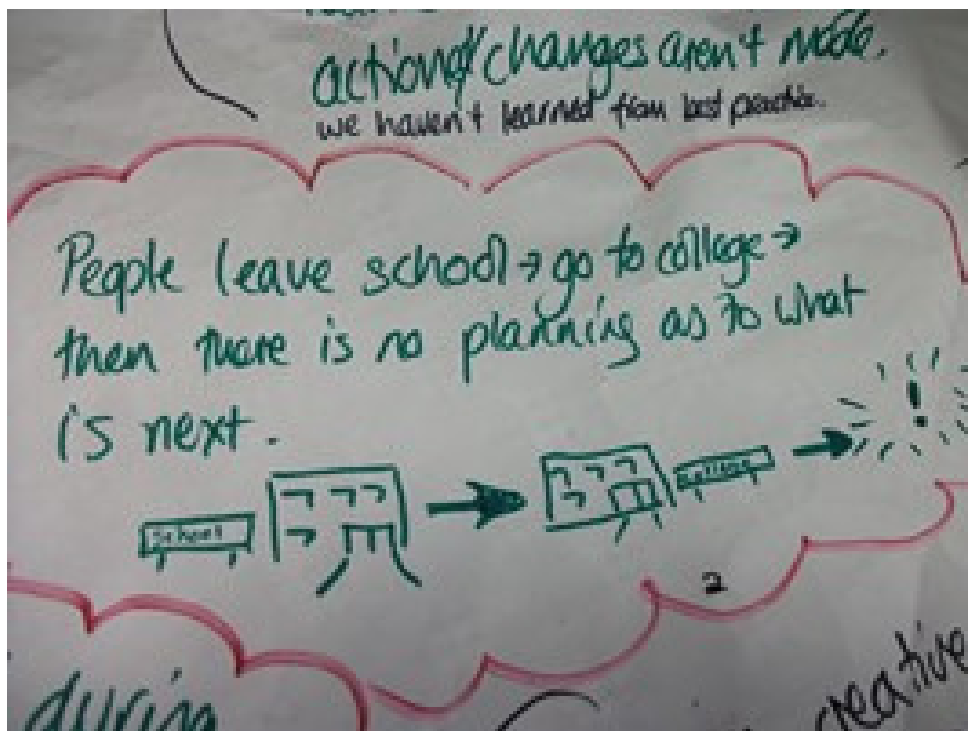 action/changes aren't made.
we haven't learned from last practice.
People leave school → go to college →
then there is no planning as to what
is next.
School
college
!
2
during
creative